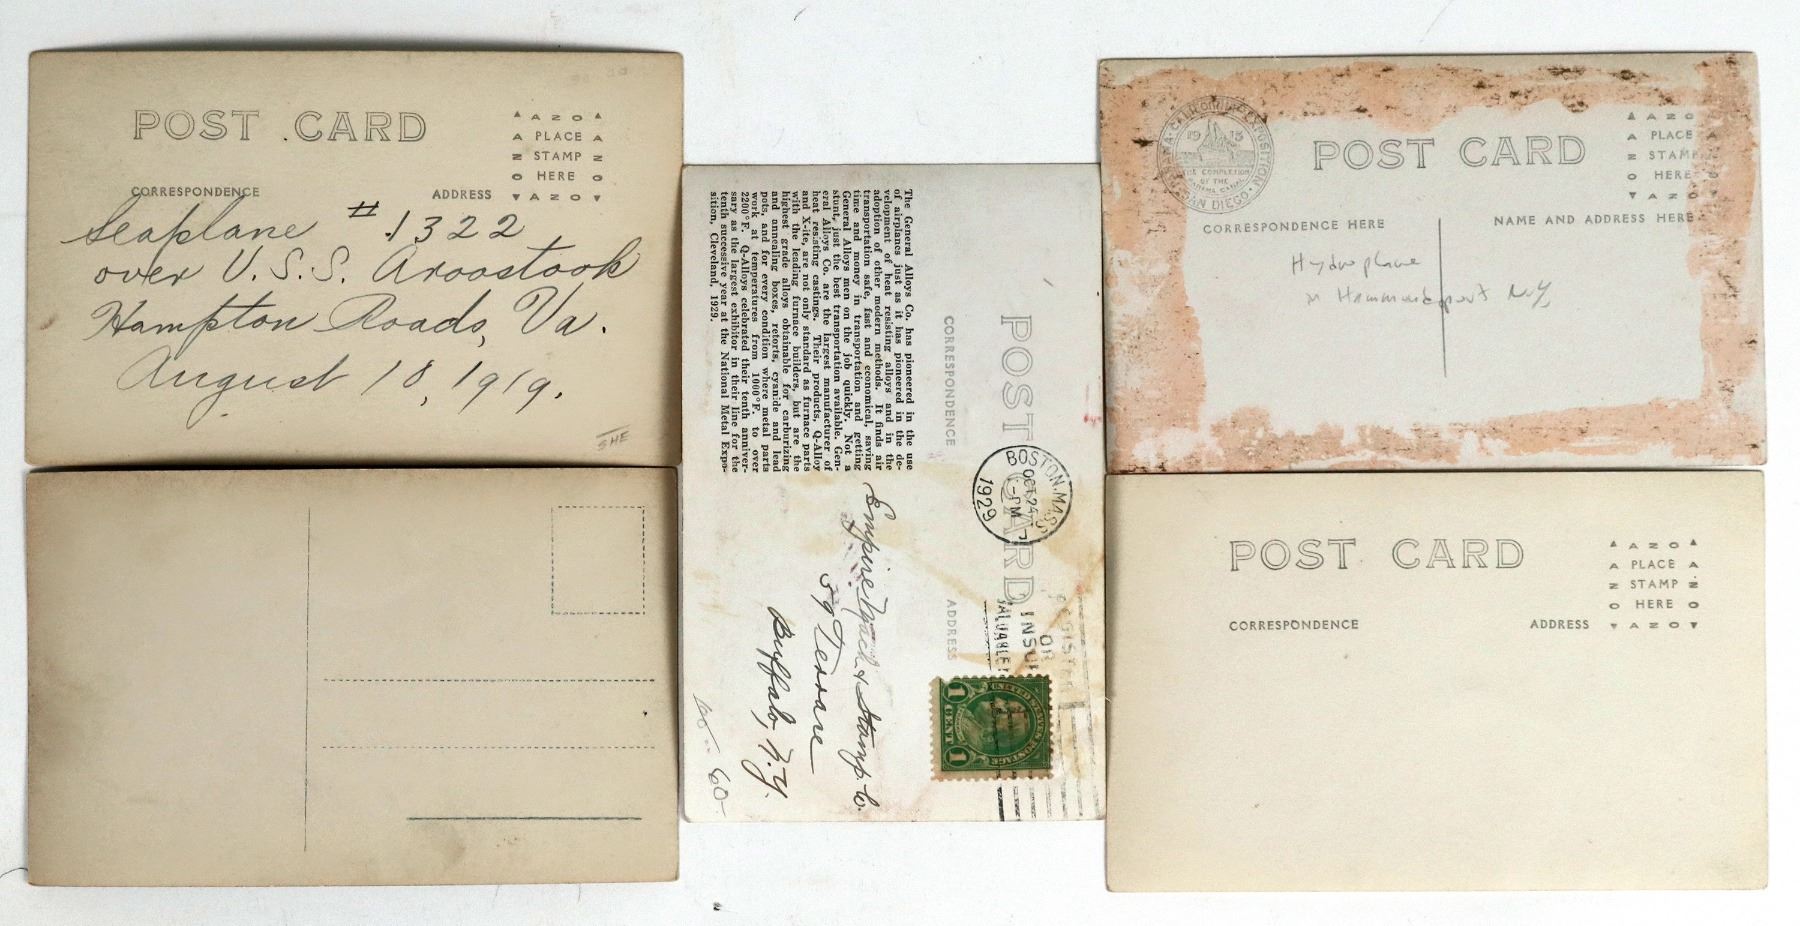 POST CARD
CORRESPONDENCE
ADDRESS
AZO
PLACE
STAMP
HERE
AZO
Seaplane #1322
over U.S.S. Aroostook
Hampton Roads, Va.
August 18, 1919.
SHE
The General Alloys Co. has pioneered in the use
of airplanes just as it has pioneered in the de-
velopment of heat resisting alloys and in the
adoption of other modern methods. It finds air
transportation safe, fast and economical, saving
time and money in transportation and getting
General Alloys men on the job quickly. Not a
stunt, just the best transportation available. Gen-
eral Alloys Co. are the largest manufacturers of
heat resisting castings. Their products, Q-Alloy
and X-ite, are not only standard as furnace parts
with the leading furnace builders, but are the
highest grade alloys obtainable for carburizing
and annealing boxes, retorts, cyanide and lead
pots, and for every condition where metal parts
work at temperatures from 1000°F. to over
2200°F. Q-Alloys celebrated their tenth anniver-
sary as the largest exhibitor in their line for the
tenth successive year at the National Metal Expo-
sition, Cleveland, 1929.
POST CARD
CORRESPONDENCE
ADDRESS
BOSTON, MASS.
OCT 24
1-PM
1929
OR
INSURE
VALUABLE
Empire Mach. & Stamp. Co.
59 Terrace
Buffalo, N.Y.
UNITED STATES POSTAGE
1 CENT 1
60-
PANAMA-CALIFORNIA EXPOSITION
1915
THE COMPLETION
OF THE
PANAMA CANAL
SAN DIEGO
POST CARD
AZO
PLACE
STAMP
HERE
AZO
CORRESPONDENCE HERE
NAME AND ADDRESS HERE
Hydroplane
in Hammondsport N.Y.
POST CARD
CORRESPONDENCE
ADDRESS
AZO
PLACE
STAMP
HERE
AZO